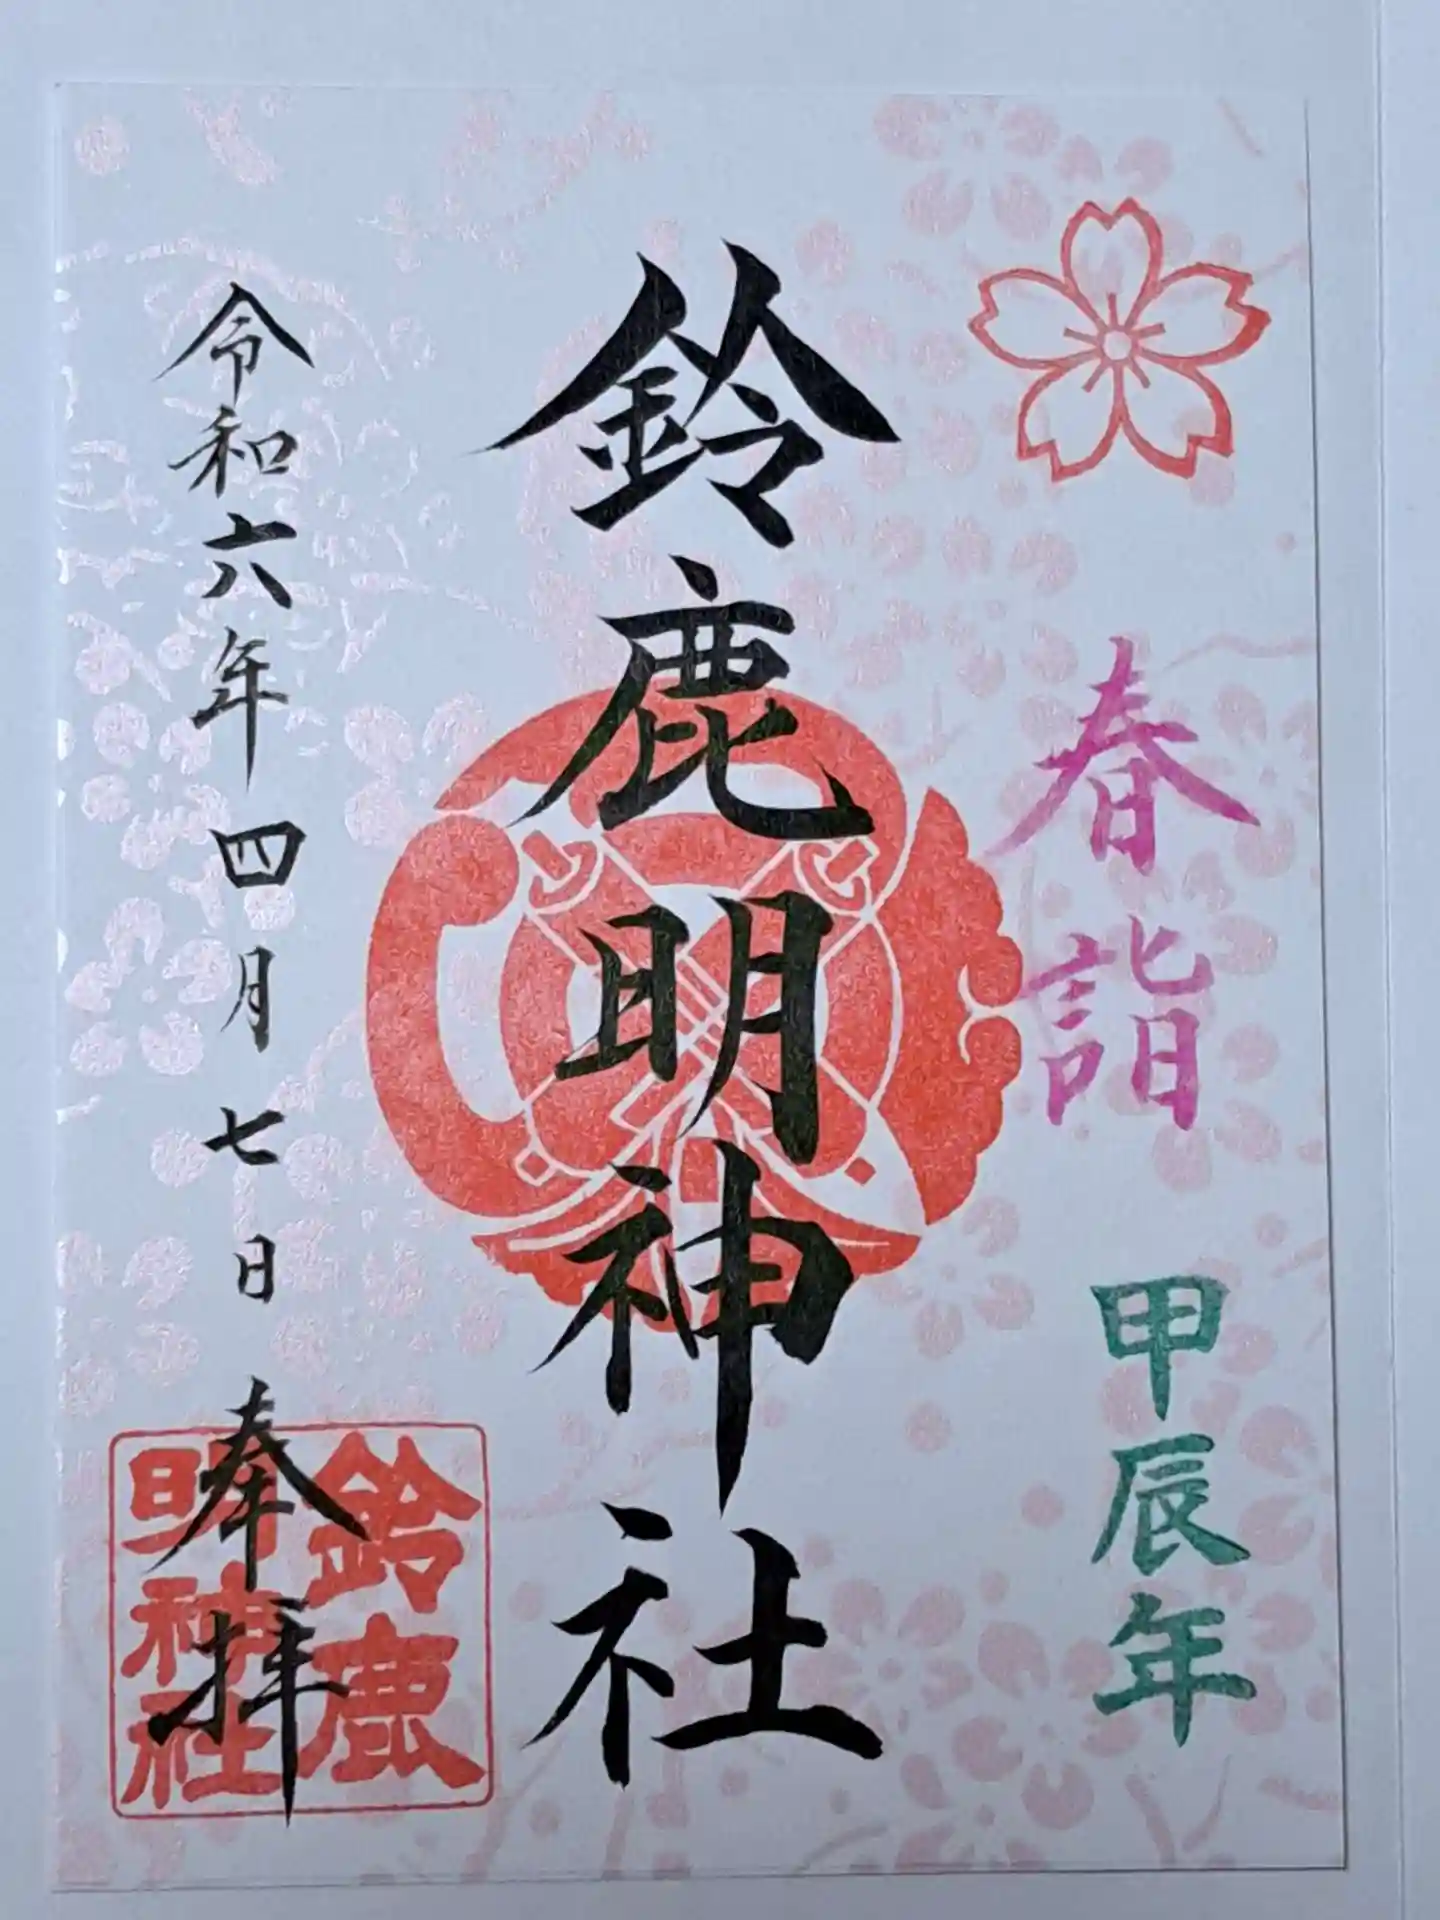 春詣
甲辰年
鈴鹿明神社
令和六年四月七日 奉拝
鈴鹿
明神社